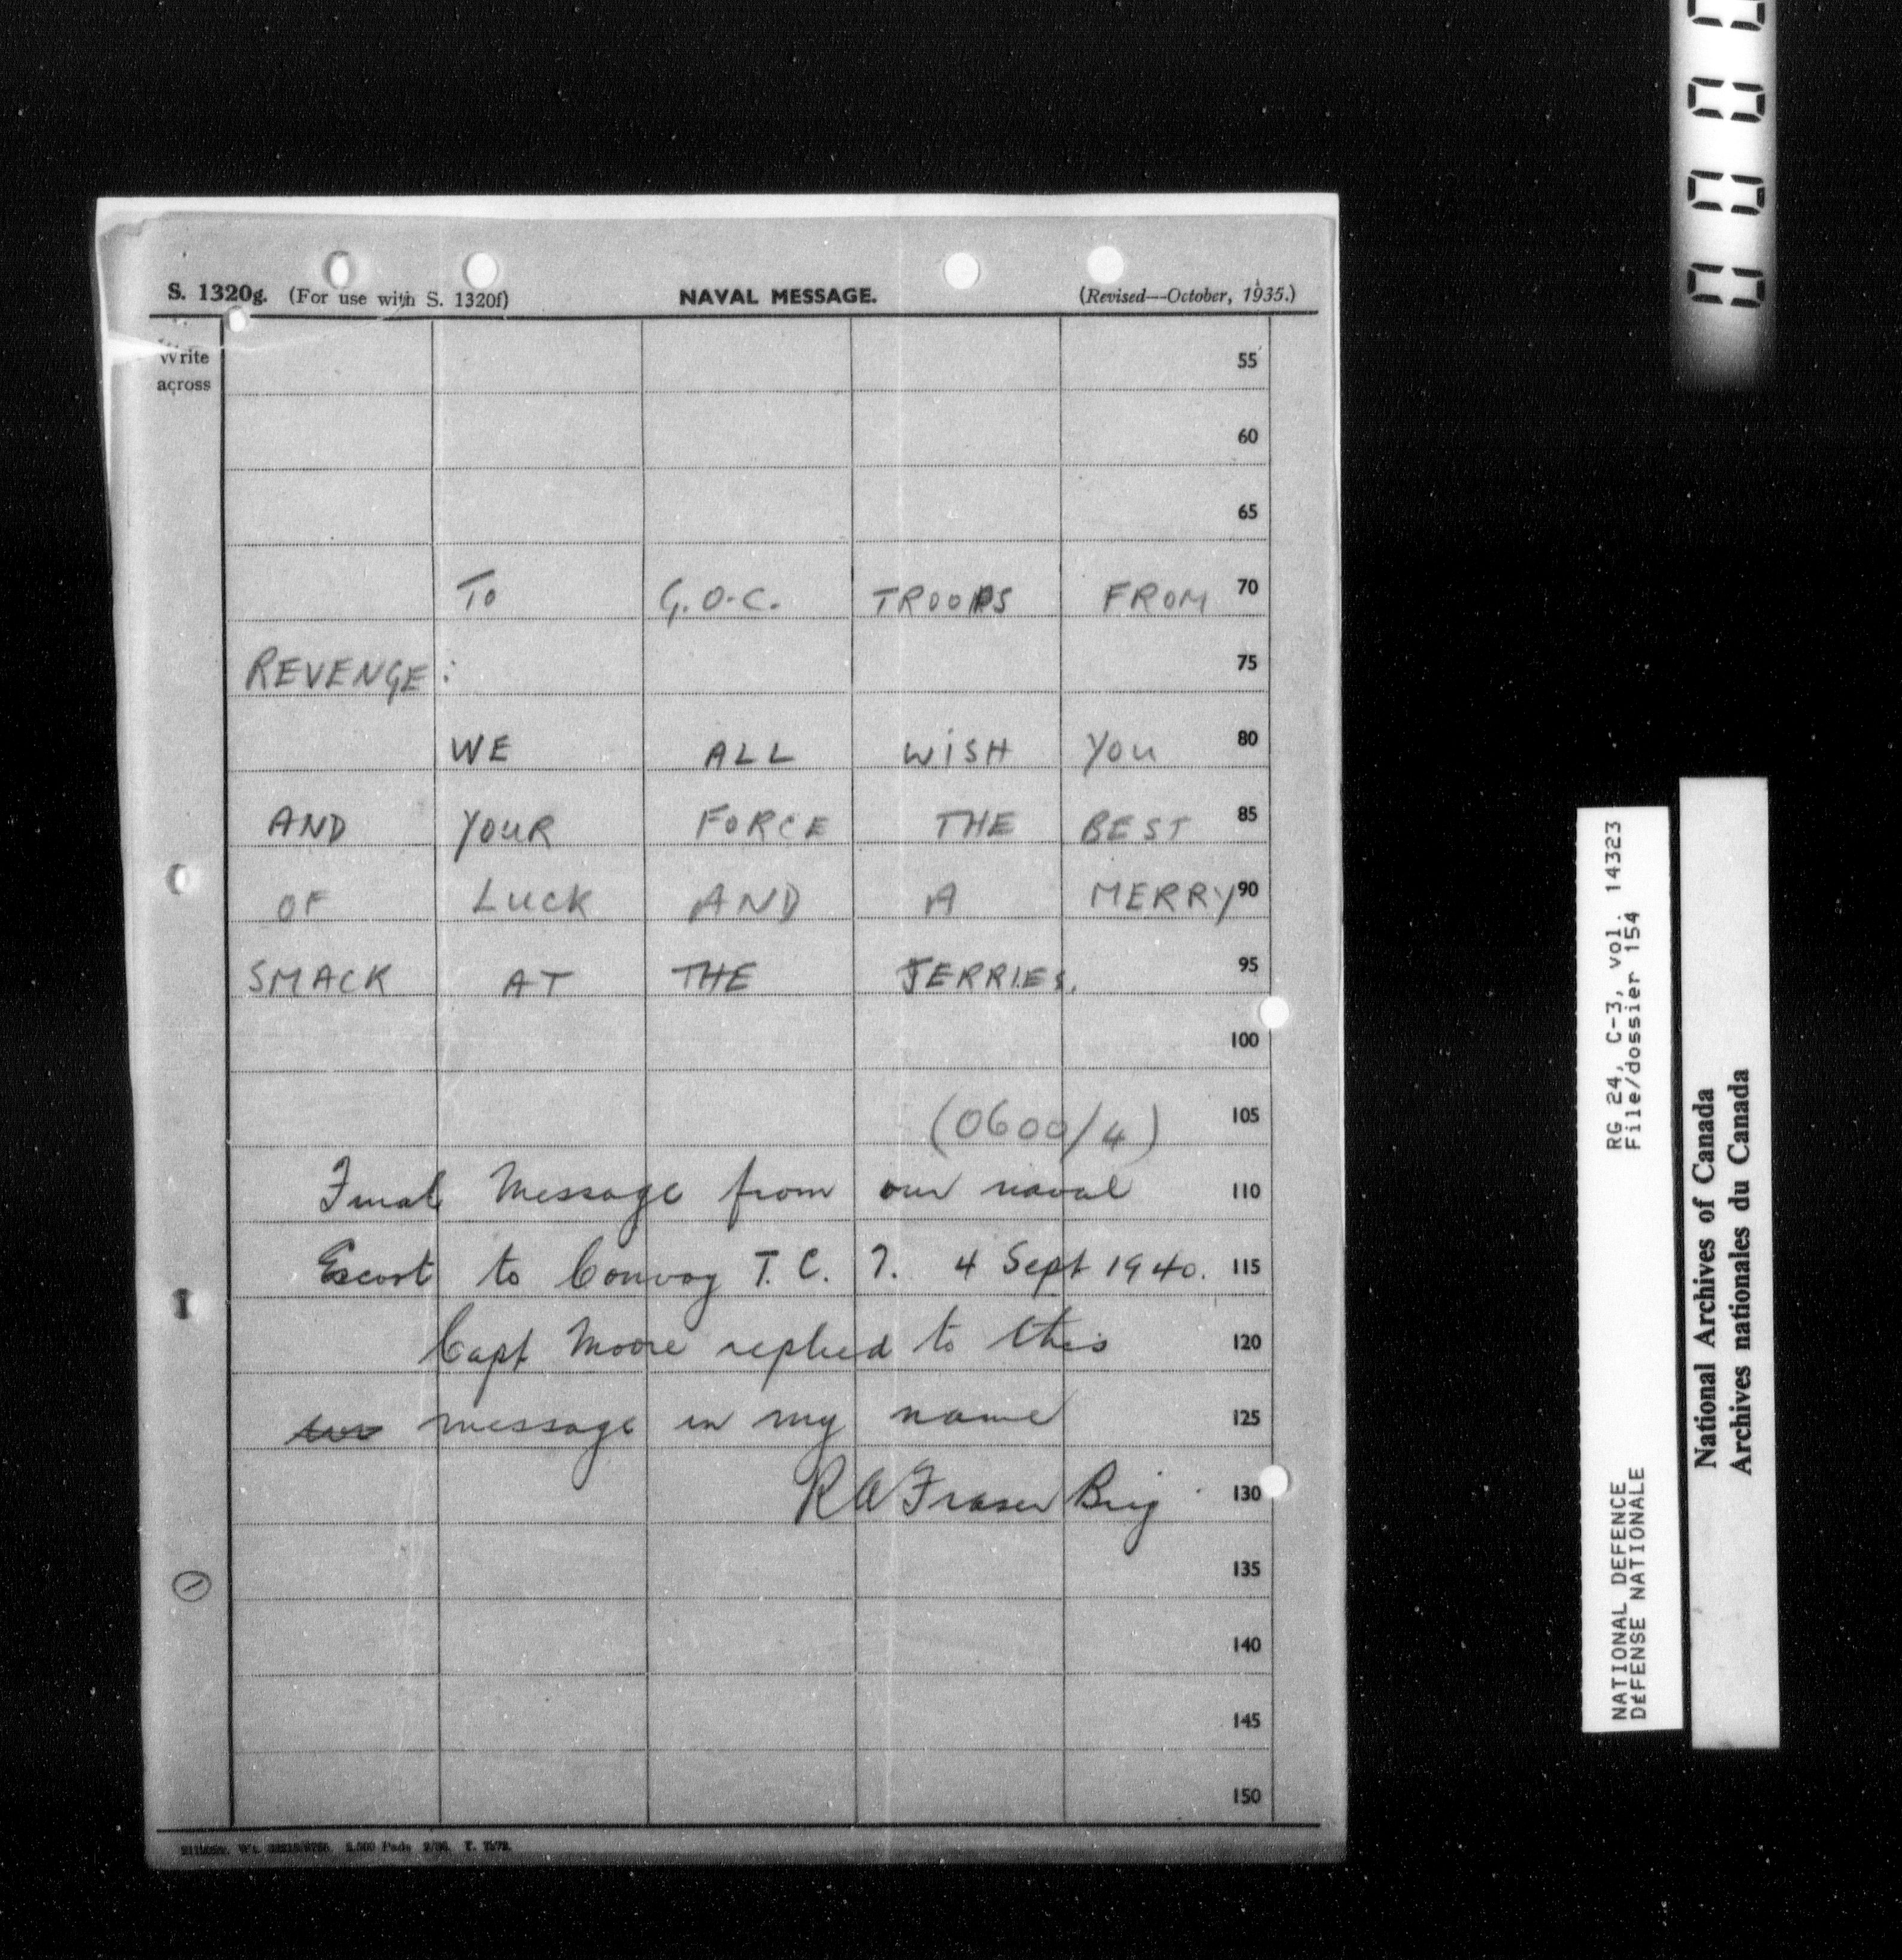 S. 1320g. (For use with S. 1320f) NAVAL MESSAGE. (Revised—October, 1935.)
Write
across
55
60
65
To G.O.C. TROOPS FROM 70
REVENGE: 75
WE ALL WISH YOU 80
AND YOUR FORCE THE BEST 85
OF LUCK AND A MERRY 90
SMACK AT THE JERRIES. 95
100
(0600/4) 105
Final Message from our naval 110
Escort to Convoy T.C. 7. 4 Sept 1940. 115
Capt Moore replied to this 120
message in my name 125
RA Fraser Brig 130
135
140
145
150
5,500 Pads 2/36.
RG 24, C-3, vol. 14323
File/dossier 154
NATIONAL DEFENCE
DÉFENSE NATIONALE
National Archives of Canada
Archives nationales du Canada